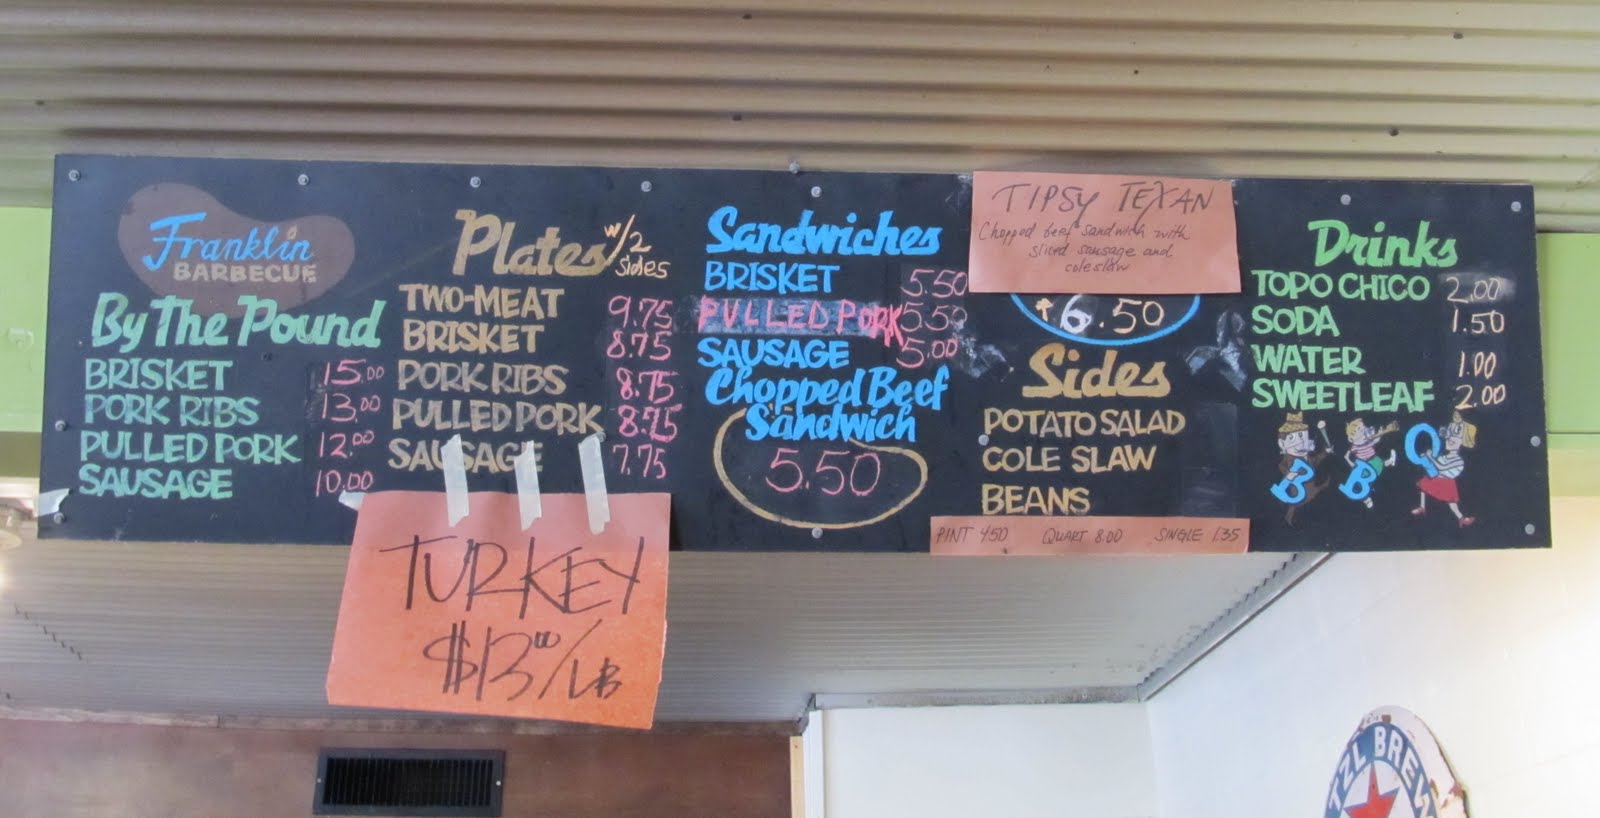 Franklin
BARBECUE
By The Pound
BRISKET 15.00
PORK RIBS 13.00
PULLED PORK 12.00
SAUSAGE 10.00
Plates w/2 sides
TWO-MEAT 9.75
BRISKET 8.75
PORK RIBS 8.75
PULLED PORK 8.75
SAUSAGE 7.75
TURKEY
$13.00/LB
Sandwiches
BRISKET 5.50
PULLED PORK 5.50
SAUSAGE 5.00
Chopped Beef
Sandwich
5.50
TIPSY TEXAN
Chopped beef sandwich with
sliced sausage and
coleslaw
$6.50
Sides
POTATO SALAD
COLE SLAW
BEANS
PINT 4.50 QUART 8.00 SINGLE 1.35
Drinks
TOPO CHICO 2.00
SODA 1.50
WATER 1.00
SWEETLEAF 2.00
B B Q
TZL BREW